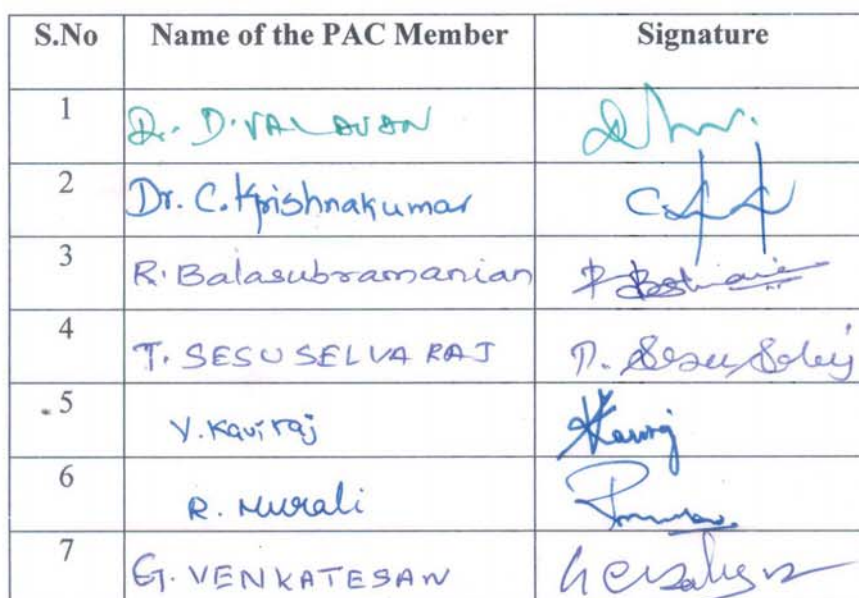 S.No Name of the PAC Member Signature
1 Dr. D. VALAVAN
2 Dr. C. Krishnakumar
3 R. Balasubramanian
4 T. SESU SELVA RAJ T. Sesu
5 V. Kaviraj Kaviraj
6 R. Murali
7 G. VENKATESAN